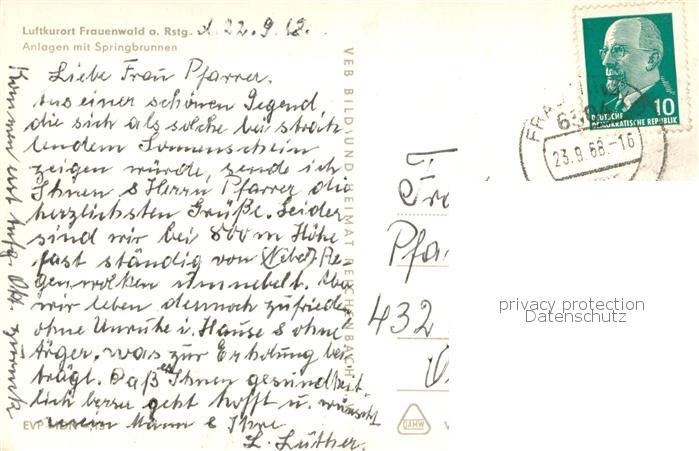 Luftkurort Frauenwald a. Rstg. d. 22.9.68.
Anlagen mit Springbrunnen
Liebe Frau Pfarrer,
Aus einer schönen Gegend,
die sich als solche bei strah
lendem Sonnenschein
zeigen würde, sende ich
Ihnen & Herrn Pfarrer die
herzlichsten Grüße. Leider
sind wir bei 800 m Höhe
fast ständig von (Nebel) Re
genwolken umnebelt. Aber
wir leben dennoch zufrieden
ohne Unruhe i. Hause & ohne
Ärger, was zur Erholung bei
trägt. Daß es Ihnen gesundheit
lich besser geht hofft u. wünscht
mein Mann & Ihre
L. Luther.
Kommen erst Anfg. Okt. zurück
EVP
VEB BILD UND HEIMAT REICHENBACH
DEUTSCHE
DEMOKRATISCHE REPUBLIK
10
6304
23.9.68.-16
Pfa
432
privacy protection
Datenschutz
QAMW